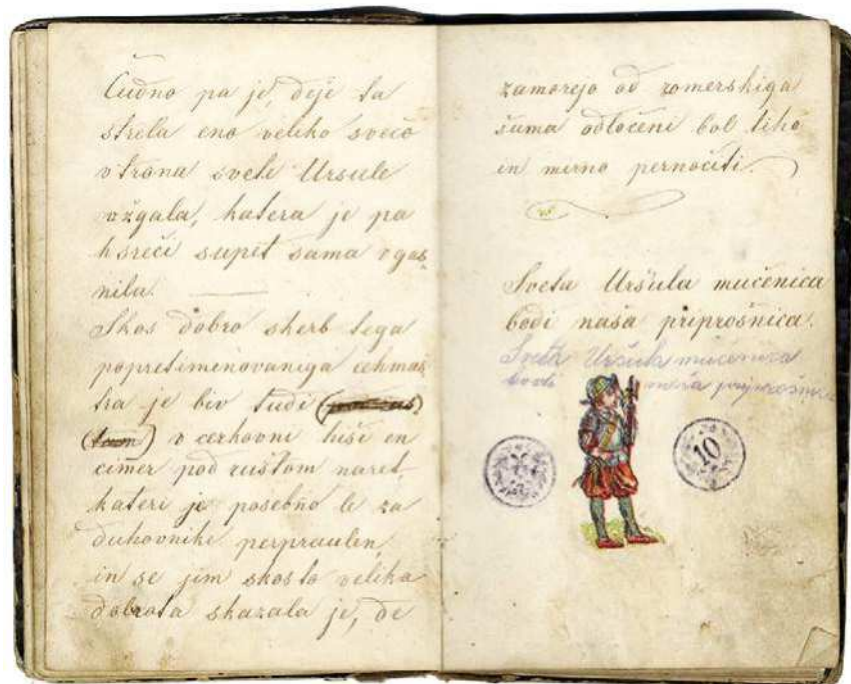 Čudno pa je, deje ta
strela eno veliko svečo
v trona svete Ursule
vžgala, katera je pa
k sreči supet sama vgas
nila.
Skos dobro skerb tega
popretimenovaniga cehmaš
tra je biv tudi
v cerkovni hiši en
cimer pod ruštom naret
kateri je posebno le za
duhovnike perpraulen,
in se jim skos to velika
dobrota skazala je, de
zamorejo od romerskiga
šuma odločeni bol tiho
in mirno pernočiti.
Sveta Uršula mučenica
bodi naša priprošnica.
Sveta Uršula mučenica
bodi naša priprošnica
10